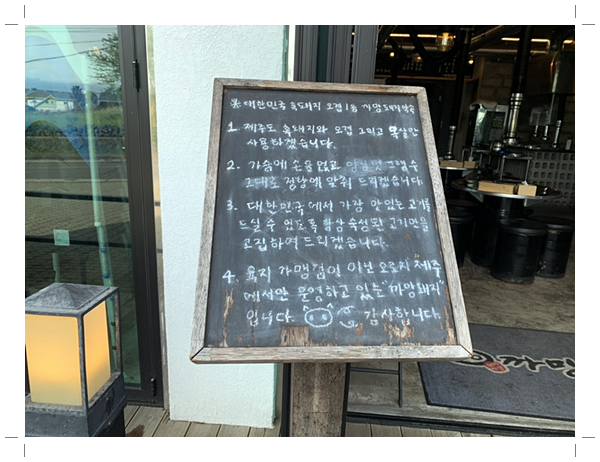 ※대한민국 흑돼지 오겹 1등 까망돼지 약속
1. 제주도 흑돼지와 오겹 그리고 목살만
사용하겠습니다.
2. 가슴에 손을 얹고 그램수
그대로 정량에 맞춰 드리겠습니다.
3. 대한민국에서 가장 맛있는 고기를
드실 수 있도록 항상 숙성된 고기만을
고집하여 드리겠습니다.
4. 육지 가맹점일 이번 오로지 "제주
에서만 운영하고 있는 "까망돼지"
입니다. 감사합니다.
까망